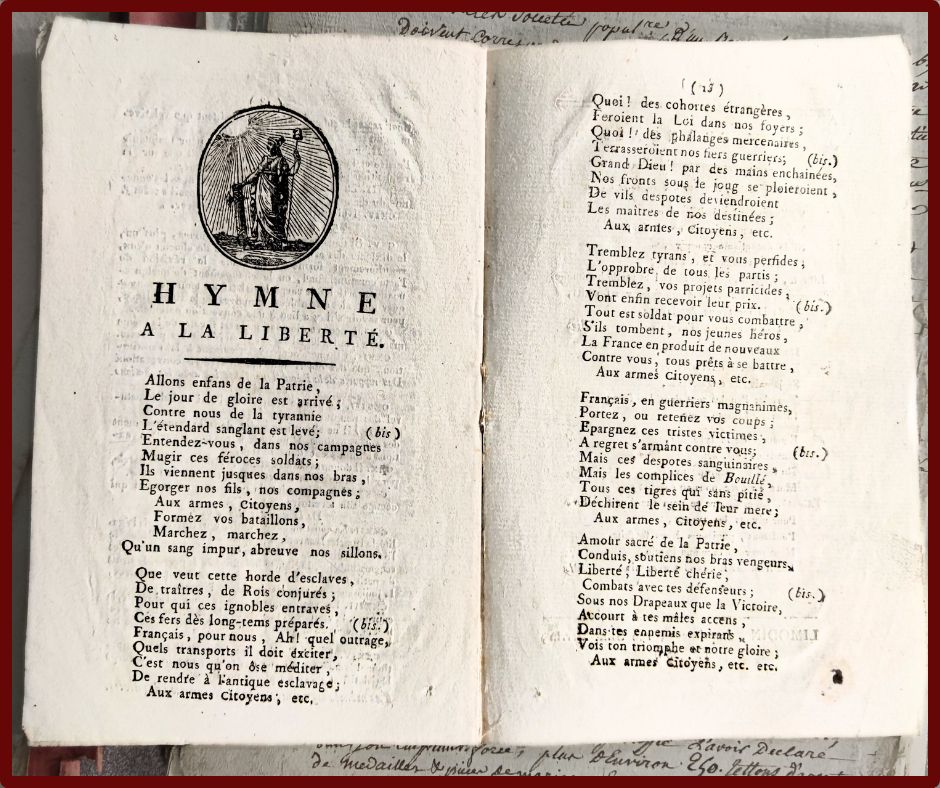 Doivent
HYMNE
A LA LIBERTÉ.
Allons enfans de la Patrie,
Le jour de gloire est arrivé;
Contre nous de la tyrannie
L'étendard sanglant est levé; (bis)
Entendez-vous, dans nos campagnes
Mugir ces féroces soldats;
Ils viennent jusques dans nos bras,
Egorger nos fils, nos compagnes;
Aux armes, Citoyens,
Formez vos bataillons,
Marchez, marchez,
Qu'un sang impur, abreuve nos sillons.
Que veut cette horde d'esclaves,
De traîtres, de Rois conjurés;
Pour qui ces ignobles entraves,
Ces fers dès long-tems préparés. (bis.)
Français, pour nous, Ah! quel outrage,
Quels transports il doit exciter,
C'est nous qu'on ose méditer,
De rendre à l'antique esclavage;
Aux armes Citoyens, etc.
Quoi! des cohortes étrangères,
Feroient la Loi dans nos foyers;
Quoi! des phalanges mercenaires,
Terrasseroient nos fiers guerriers; (bis.)
Grand Dieu! par des mains enchainées,
Nos fronts sous le joug se ploieroient,
De vils despotes deviendroient
Les maîtres de nos destinées;
Aux armes, Citoyens, etc.
Tremblez tyrans, et vous perfides;
L'opprobre de tous les partis;
Tremblez, vos projets parricides,
Vont enfin recevoir leur prix. (bis.)
Tout est soldat pour vous combattre,
S'ils tombent, nos jeunes héros,
La France en produit de nouveaux
Contre vous, tous prêts à se battre,
Aux armes Citoyens, etc.
Français, en guerriers magnanimes,
Portez, ou retenez vos coups;
Epargnez ces tristes victimes,
A regret s'armant contre vous; (bis.)
Mais ces despotes sanguinaires,
Mais les complices de Bouillé,
Tous ces tigres qui sans pitié,
Déchirent le sein de leur mere;
Aux armes, Citoyens, etc.
Amour sacré de la Patrie,
Conduis, soutiens nos bras vengeurs,
Liberté, Liberté chérie,
Combats avec tes défenseurs; (bis.)
Sous nos Drapeaux que la Victoire,
Accourt à tes mâles accens,
Dans tes ennemis expirans,
Vois ton triomphe et notre gloire;
Aux armes Citoyens, etc. etc.
L'avoir Declaré
de medailles